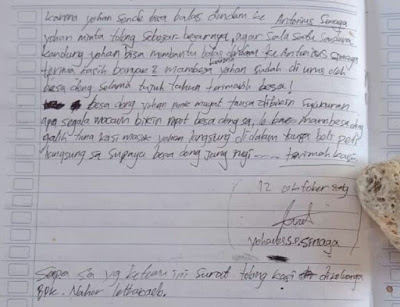 karena yohan sendiri bisa balas dendam ke Antonius Sinaga
yohan minta tolong sebesar besarnya, agar sala satu saudara
kandung yohan bisa membantu balas dendam ke Antonius Sinaga
terima kasih banyak mamabesa karena yohan sudah di urus oleh
besa dong selama tujuh tahun terimah besa!
besa dong yohan punk mayat tausa dibikin syukuran
apa segala macam bikin repot besa dong sa, lo bae mamabesa dong
galih tana kasi masuk yohan langsung di dalam tanpa bols peti
langsung sa supaya besa dong jang rugi ..... terimah kasih
12 oktober 2019
yohanes S. Sinaga
Sapa sa yg ketemu ini surat tolong kasi di keluarga
Bpk. Naher